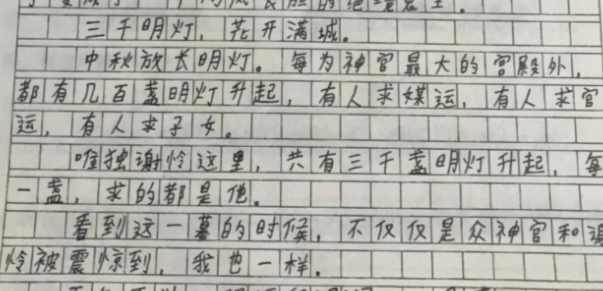 三千明灯，花开满城。
中秋放长明灯。每为神官最大的宫殿外，
都有几百盏明灯升起，有人求媒运，有人求官
运，有人求子女。
唯独谢怜这里，共有三千盏明灯升起，每
一盏，求的都是他。
看到这一幕的时候，不仅仅是众神官和谢
怜被震惊到，我也一样。